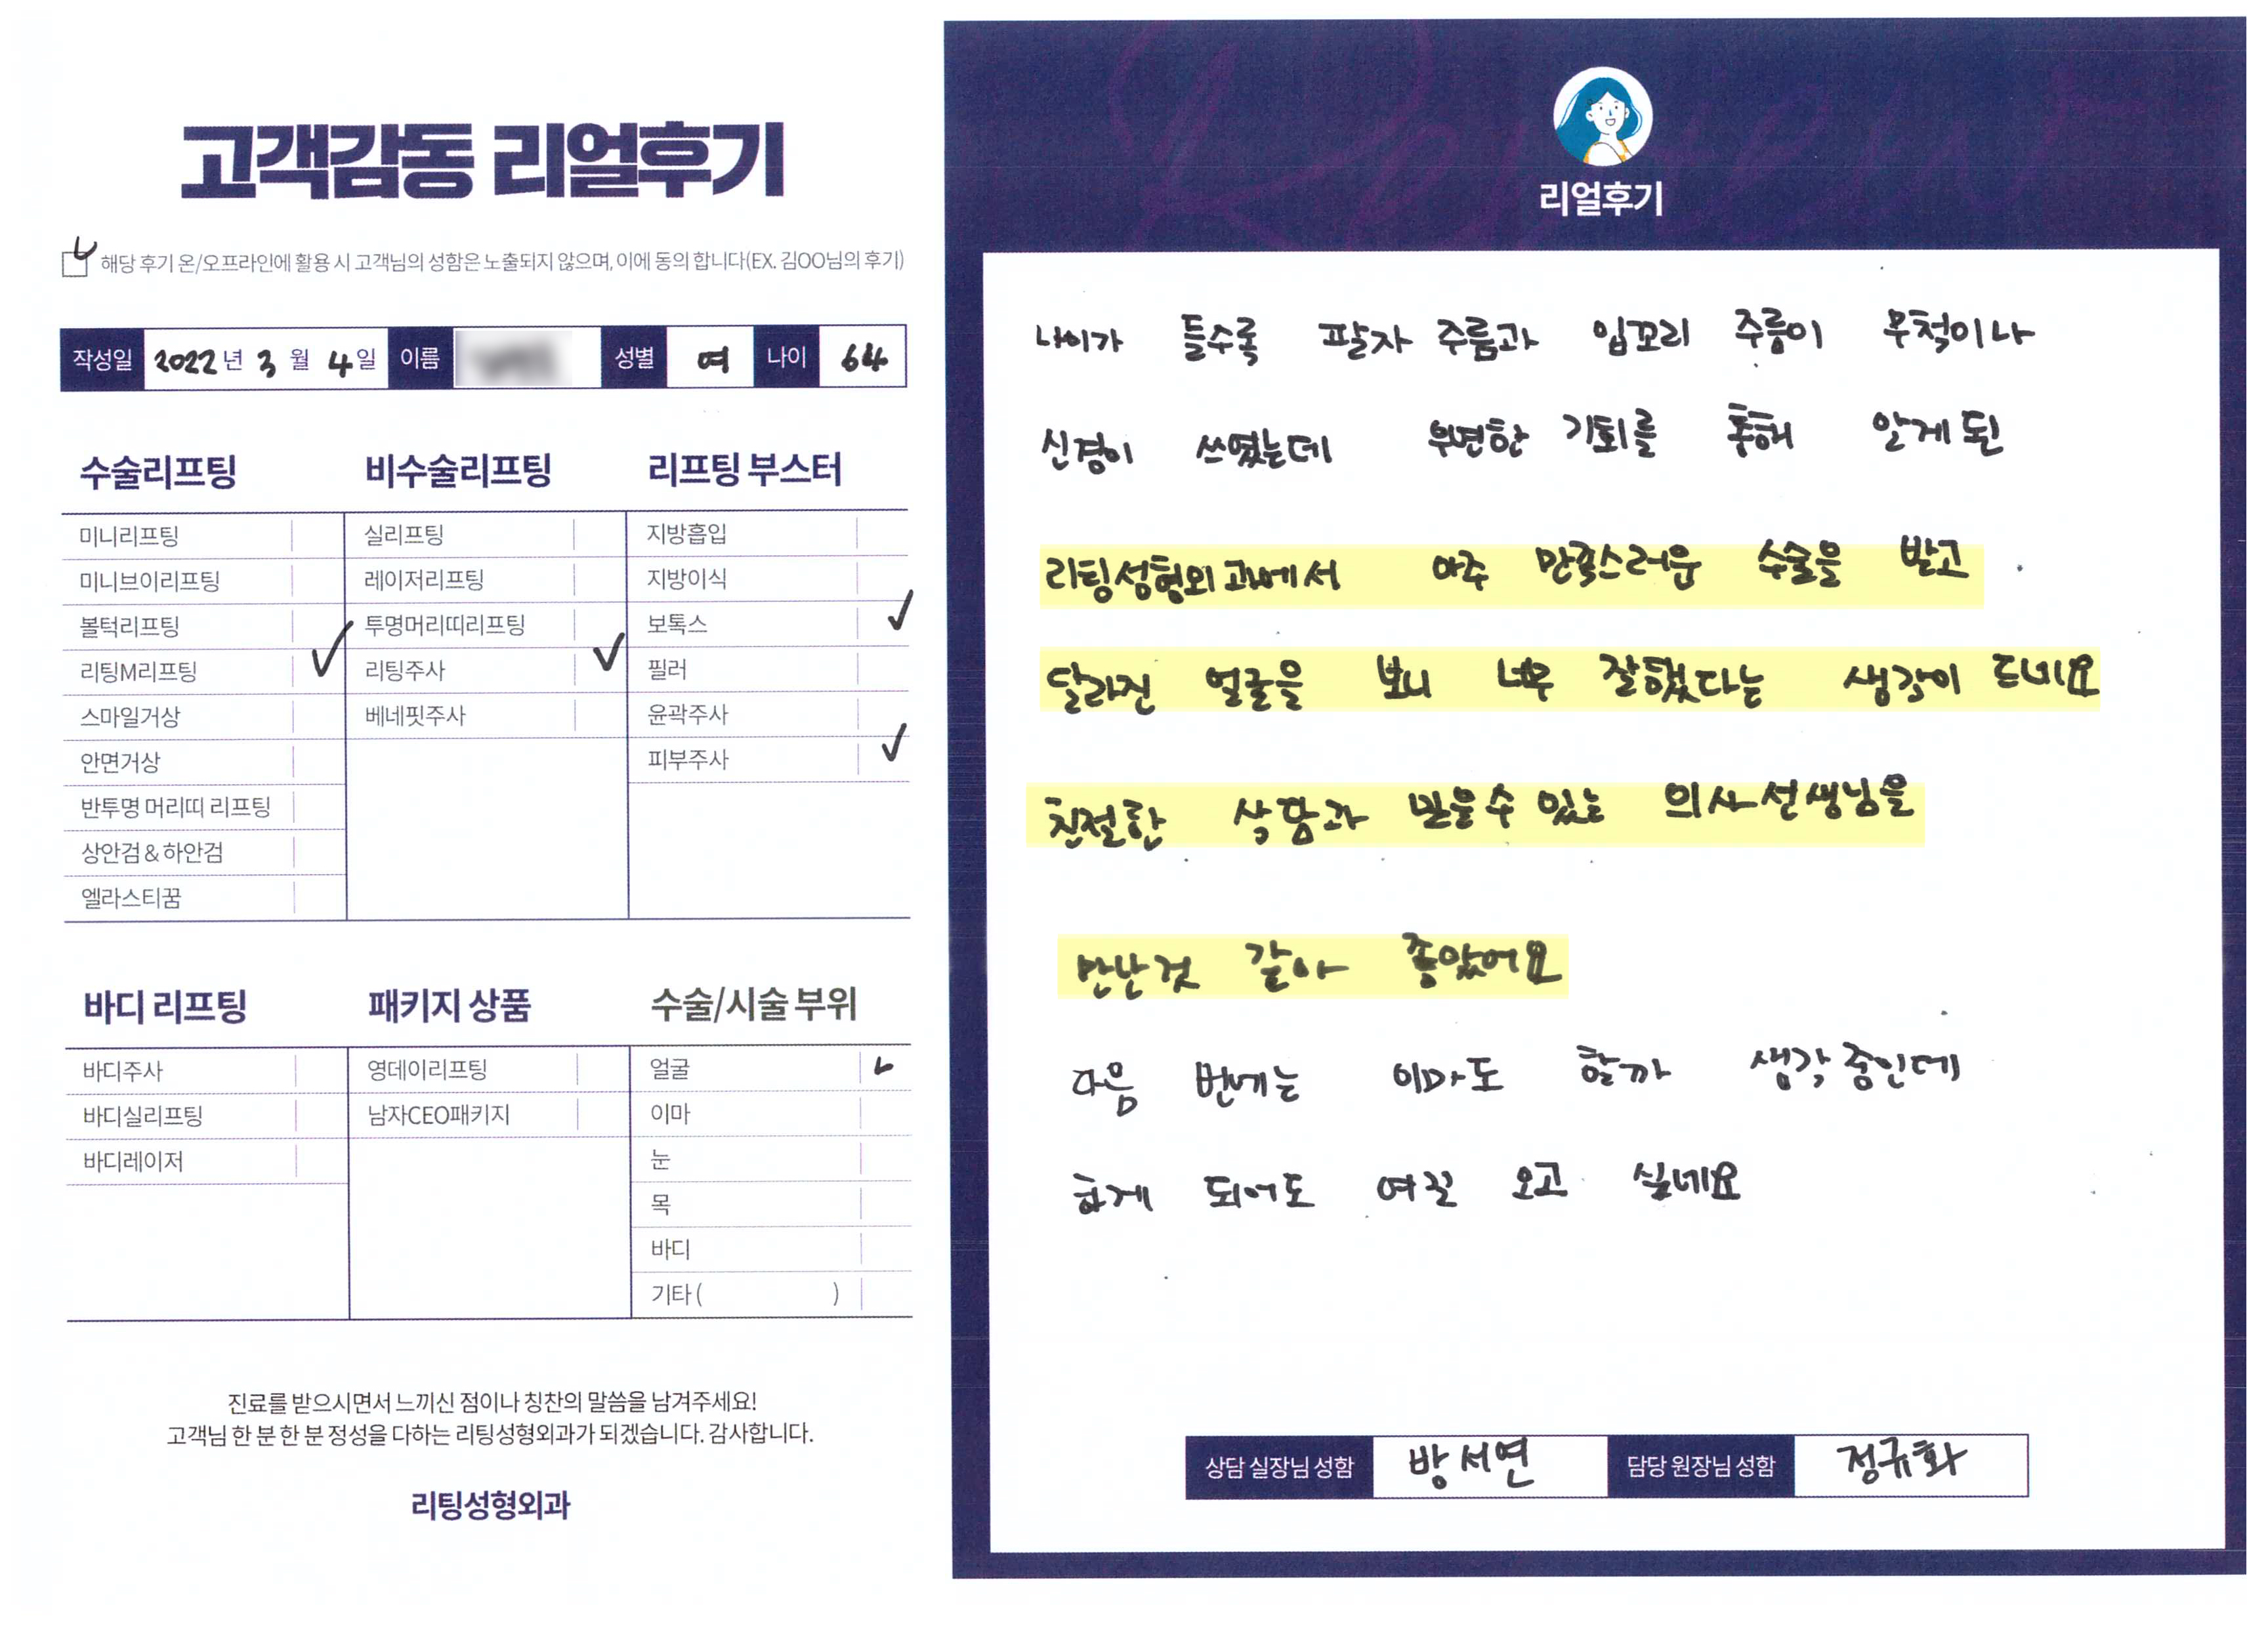 고객감동 리얼후기
해당 후기 온/오프라인에 활용 시 고객님의 성함은 노출되지 않으며, 이에 동의 합니다(EX. 김OO님의 후기)
작성일 2022년 3월 4일 이름 성별 여 나이 64
수술리프팅
미니리프팅
미니브이리프팅
볼턱리프팅
리팅M리프팅 ✓
스마일거상
안면거상
반투명 머리띠 리프팅
상안검 & 하안검
엘라스티꿈
비수술리프팅
실리프팅
레이저리프팅
투명머리띠리프팅
리팅주사 ✓
베네핏주사
리프팅 부스터
지방흡입
지방이식
보톡스 ✓
필러
윤곽주사
피부주사 ✓
바디 리프팅
바디주사
바디실리프팅
바디레이저
패키지 상품
영데이리프팅
남자CEO패키지
수술/시술 부위
얼굴 ✓
이마
눈
목
바디
기타 ( )
진료를 받으시면서 느끼신 점이나 칭찬의 말씀을 남겨주세요!
고객님 한 분 한 분 정성을 다하는 리팅성형외과가 되겠습니다. 감사합니다.
리팅성형외과
리얼후기
나이가 들수록 팔자 주름과 입꼬리 주름이 무척이나
신경이 쓰였는데 우연한 기회를 통해 알게 된
리팅성형외과에서 아주 만족스러운 수술을 받고
달라진 얼굴을 보니 너무 잘했다는 생각이 드네요
친절한 상담과 믿을수 있는 의사선생님을
만난것 같아 좋았어요
다음 번에는 이마도 할까 생각중인데
하게 되어도 여길 오고 싶네요
상담 실장님 성함 방서연 담당 원장님 성함 정규화